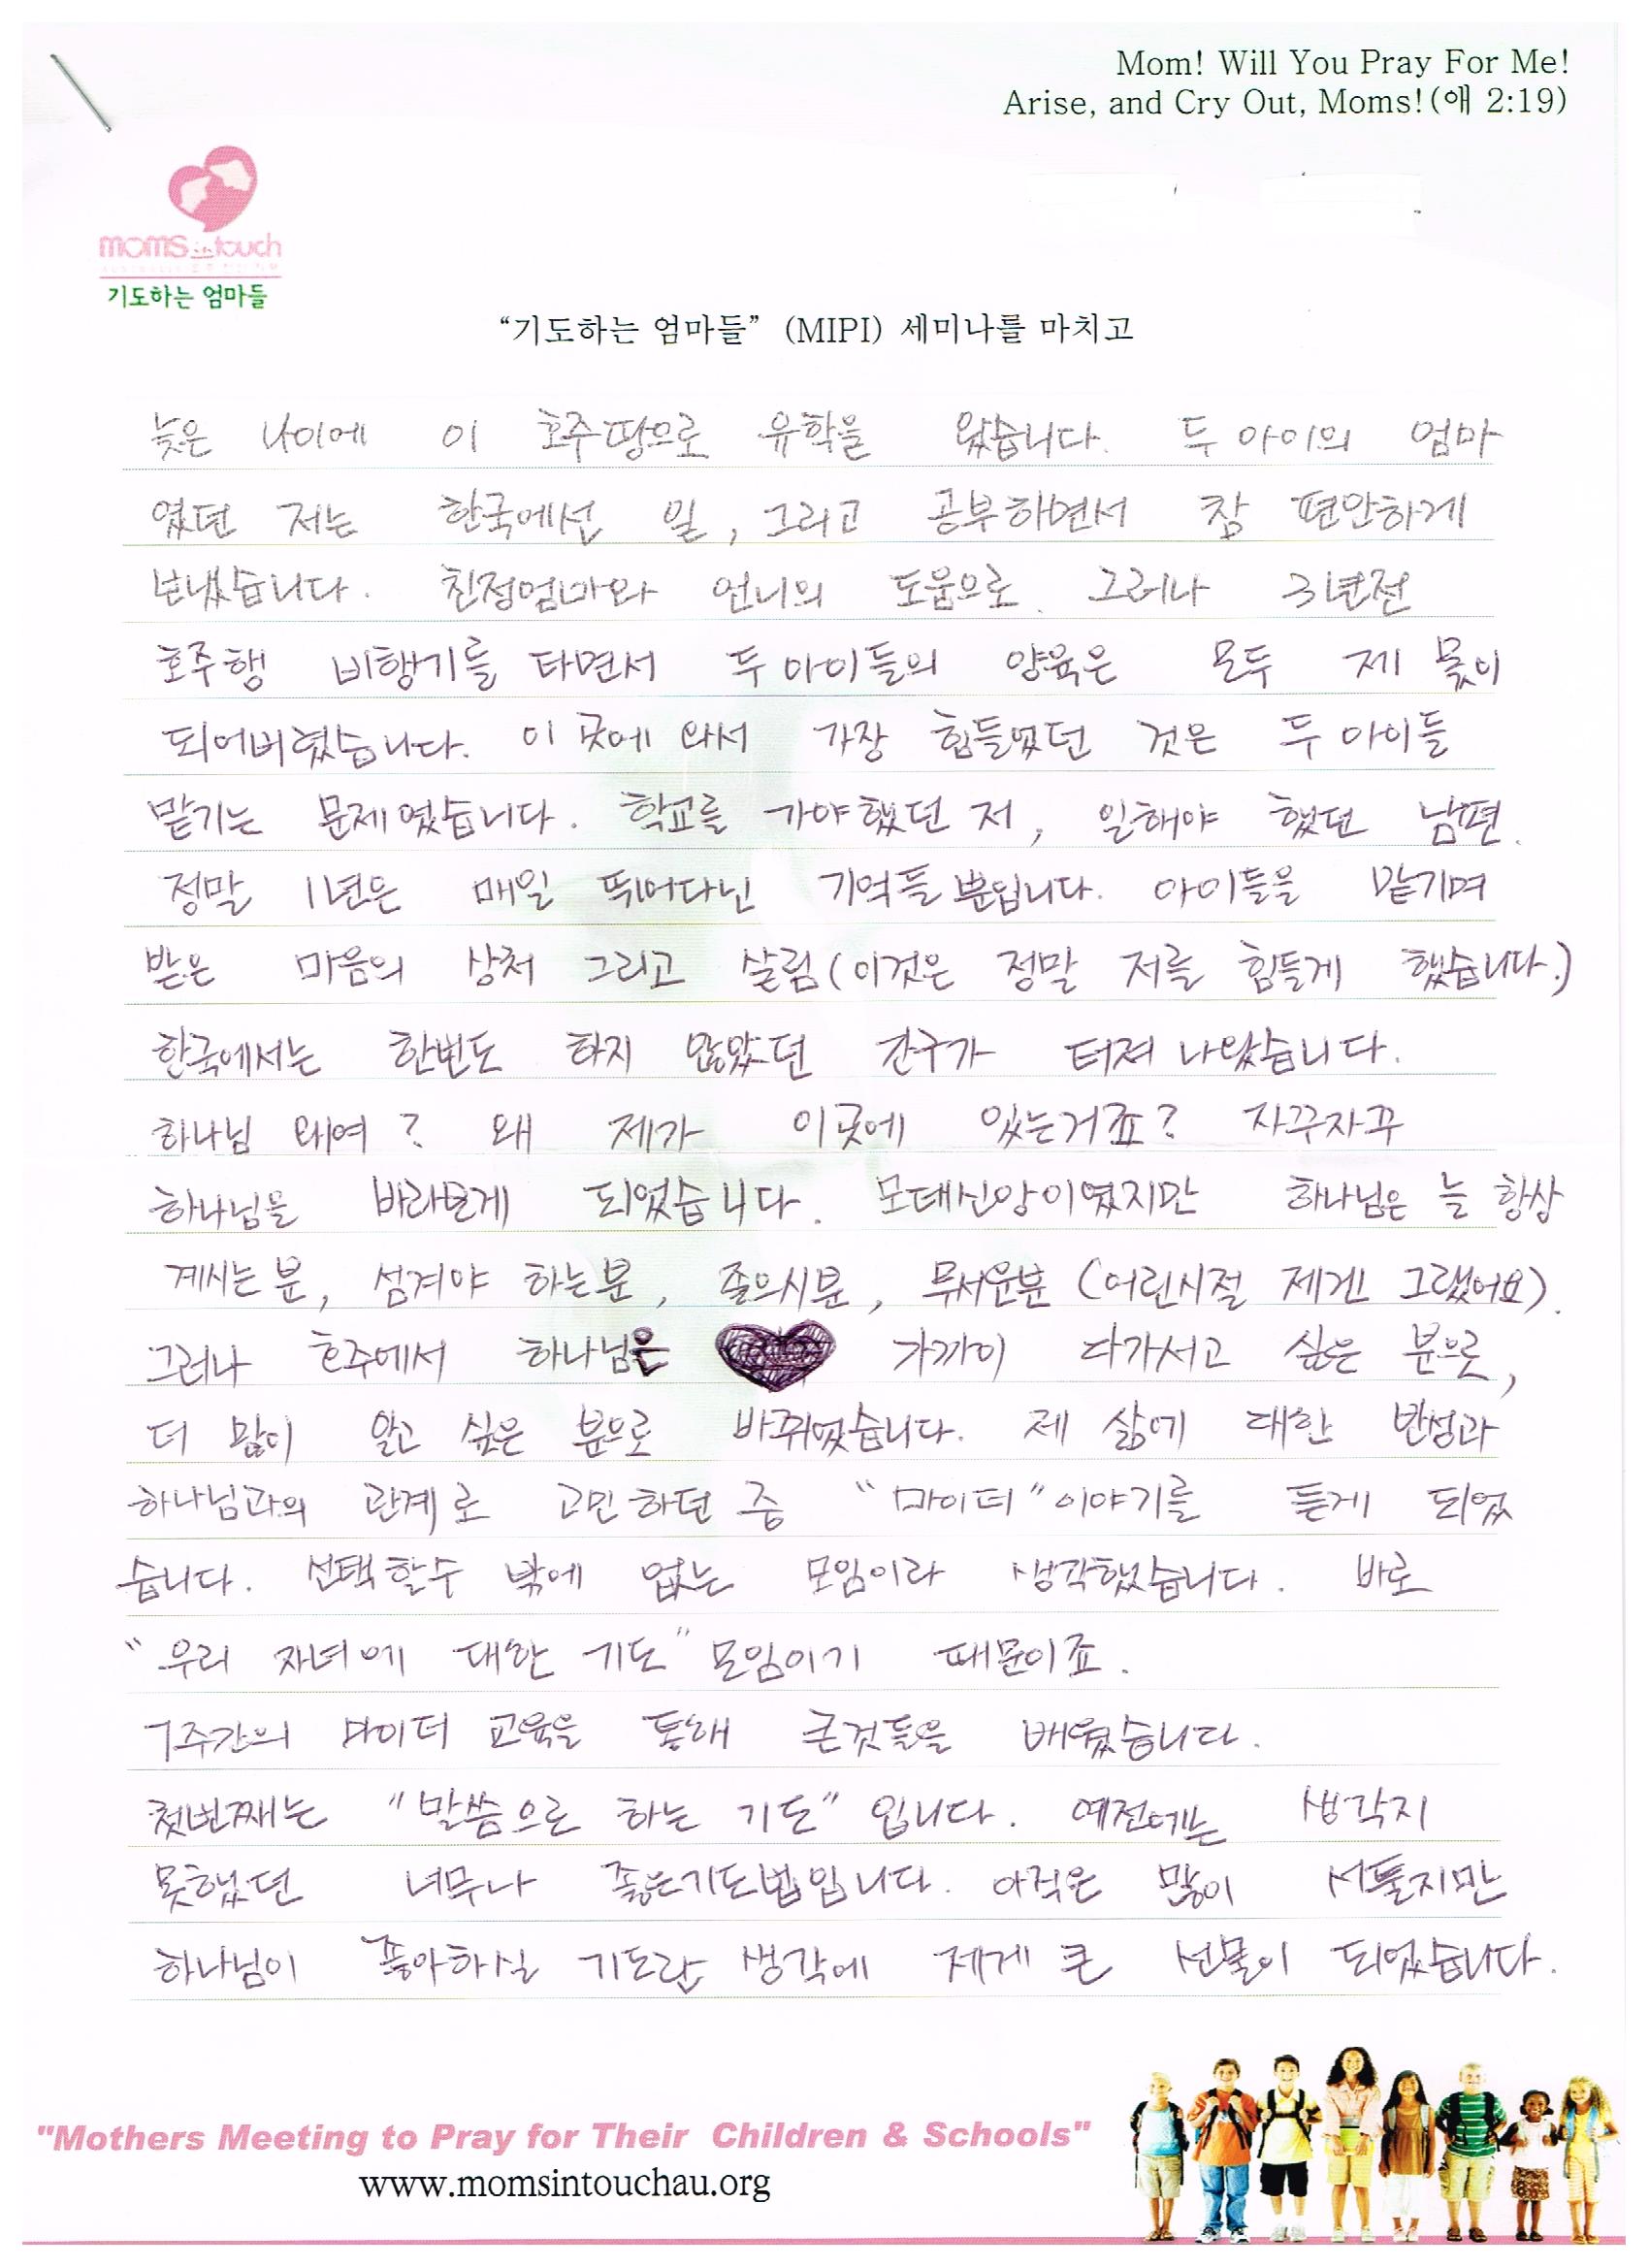 Mom! Will You Pray For Me!
Arise, and Cry Out, Moms!(애 2:19)
moms in touch
기도하는 엄마들
“기도하는 엄마들” (MIPI) 세미나를 마치고
늦은 나이에 이 호주땅으로 유학을 왔습니다. 두 아이의 엄마
였던 저는 한국에선 일, 그리고 공부하면서 참 편안하게
보냈습니다. 친정엄마와 언니의 도움으로. 그러나 3년전
호주행 비행기를 타면서 두 아이들의 양육은 모두 제 몫이
되어버렸습니다. 이 곳에 와서 가장 힘들었던 것은 두 아이들
맡기는 문제였습니다. 학교를 가야했던 저, 일해야 했던 남편.
정말 1년은 매일 뛰어다닌 기억들뿐입니다. 아이들을 맡기며
받은 마음의 상처 그리고 살림(이것은 정말 저를 힘들게 했습니다.)
한국에서는 한번도 하지 않았던 간구가 터져 나왔습니다.
하나님 왜여? 왜 제가 이곳에 있는거죠? 자꾸자꾸
하나님을 바라보게 되었습니다. 모태신앙이였지만 하나님은 늘 항상
계시는 분, 섬겨야 하는분, 졸으시분, 무서운분 (어린시절 제겐 그랬어요).
그러나 호주에서 하나님은 가까이 다가서고 싶은 분으로,
더 많이 알고 싶은 분으로 바뀌었습니다. 제 삶에 대한 반성과
하나님과의 관계로 고민하던 중 “마이더” 이야기를 듣게 되었
습니다. 선택할수 밖에 없는 모임이라 생각했습니다. 바로
“우리 자녀에 대한 기도” 모임이기 때문이죠.
7주간의 마이더 교육을 통해 큰것들을 배웠습니다.
첫번째는 “말씀으로 하는 기도” 입니다. 예전에는 생각지
못했던 너무나 좋은기도법입니다. 아직은 많이 서툴지만
하나님이 좋아하실 기도란 생각에 제게 큰 선물이 되었습니다.
"Mothers Meeting to Pray for Their Children & Schools"
www.momsintouchau.org